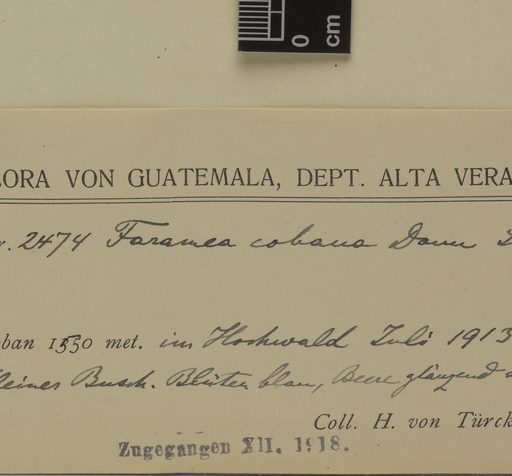 0 cm
LORA VON GUATEMALA, DEPT. ALTA VERA
r. 2474 Faramea cobana Donn
oban 1550 met. im Hochwald Juli 1913
kleiner Busch. Blüten blau, Beere glänzend
Coll. H. von Türck
Zugegangen XII. 1918.